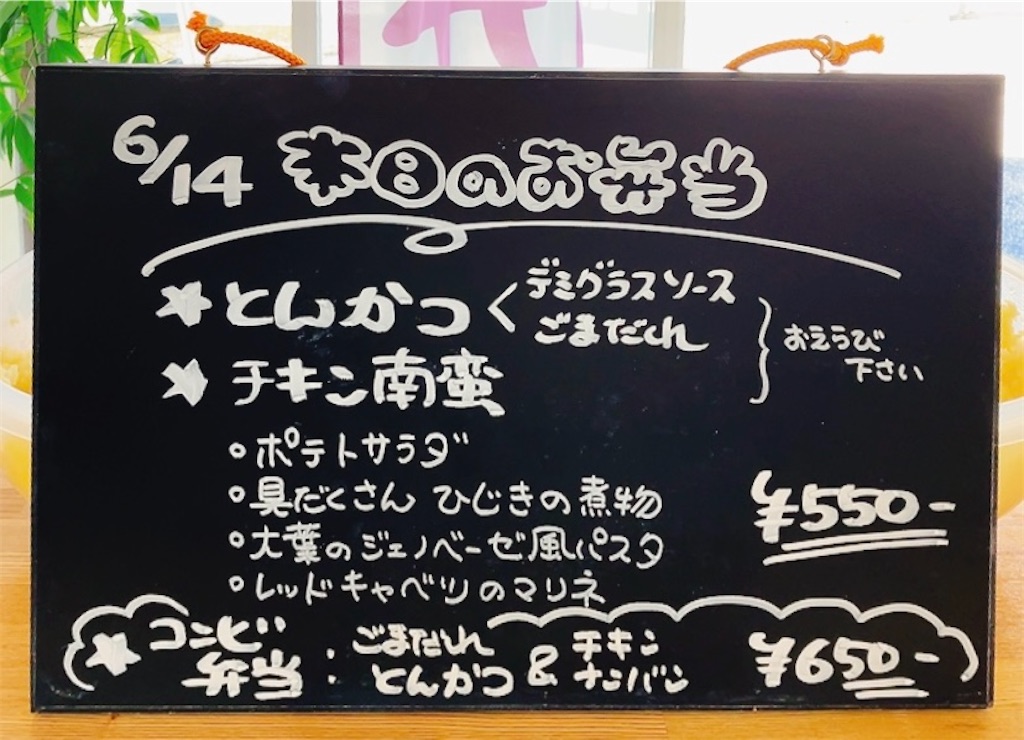 6/14 本日のお弁当
★とんかつ
デミグラスソース
ごまだれ
おえらび
下さい
★チキン南蛮
○ポテトサラダ
○具だくさん ひじきの煮物
○大葉のジェノベーゼ風パスタ
○レッドキャベツのマリネ
¥550-
★コンビ
弁当:
ごまだれ
とんかつ
&
チキン
ナンバン
¥650-